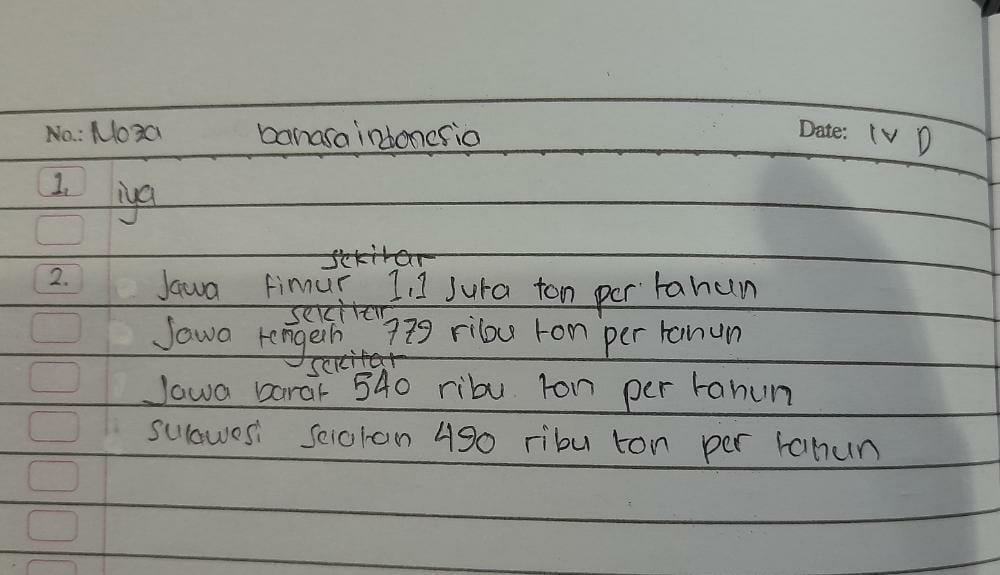 No.: Moza bahasa indonesia Date: IV D
1. iya
sekitar
2. Jawa timur 1,1 Juta ton per tahun
sekitar
Jawa tengah 779 ribu ton per tahun
sekitar
Jawa barat 540 ribu ton per tahun
sulawesi selatan 490 ribu ton per tahun